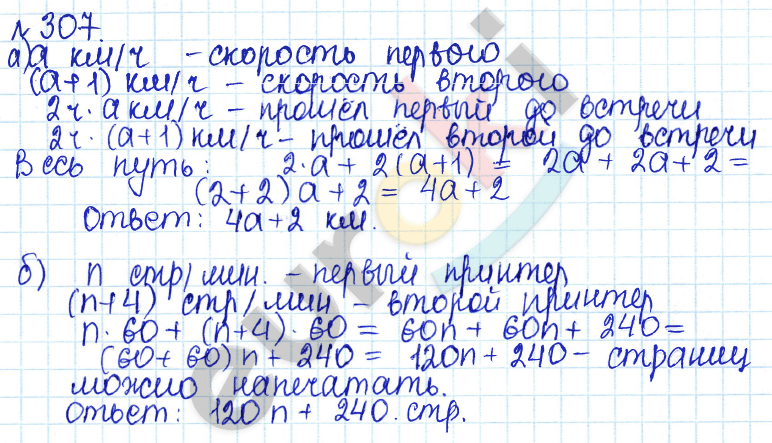 № 307.
а) а км/ч - скорость первого
(а+1) км/ч - скорость второго
2ч · а км/ч - прошёл первый до встречи
2ч · (а+1) км/ч - прошёл второй до встречи
Весь путь: 2·а + 2(а+1) = 2а + 2а + 2 =
(2+2)а + 2 = 4а + 2
Ответ: 4а+2 км.
б) n стр/мин. - первый принтер
(n+4) стр/мин - второй принтер
n·60 + (n+4)·60 = 60n + 60n + 240 =
(60+60)n + 240 = 120n + 240 - страниц
можно напечатать.
Ответ: 120n + 240 стр.
euroki